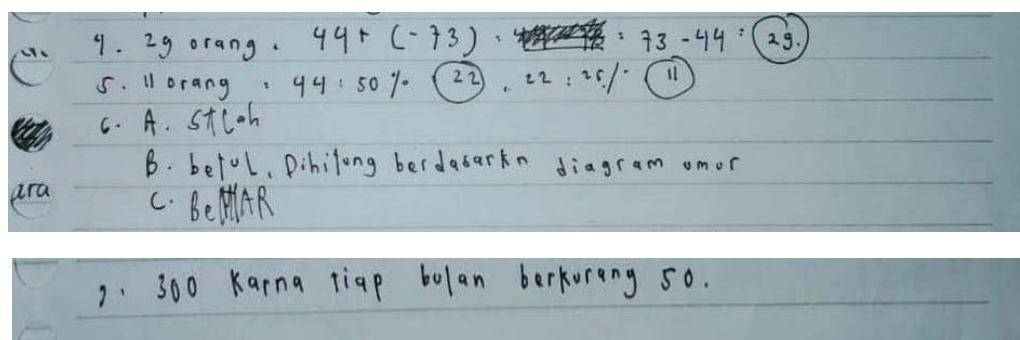 4. 29 orang. 44+ (-73) : : 73 -44 : 29.
5. 11 orang : 44 : 50 % 22 . 22 : 25 /. 11
6. A. SALah
B. betul, Dihitung berdasarkn diagram umur
ara
C. BeNAR
7. 300 Karna tiap bulan berkurang 50.